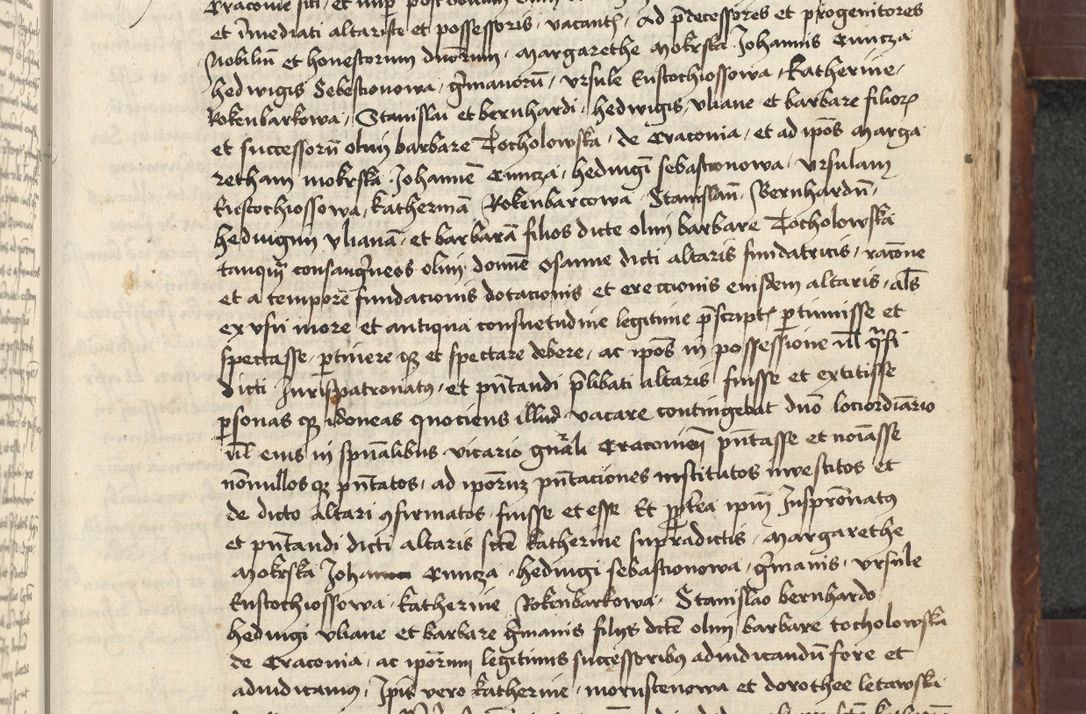 et īmediati altariste et possessoris, vacantis, Ad p̄decessores et progenitores
Nobiliū et honestorum dnōrum, Margarethe Mokrska Johannis Cuncza
hedwigis Sebestionowa, gm̄anorū, vrsule Eustochiossowa, katherine,
Rokenbarkowa, Stanislai et bernhardi, hedwigis, vliane et barbare filiorꝫ
et successorū olim barbare Tocholowska, de Craconia, et ad ipōs Marga
retham mokrska Johannē Cuncza, hedwigē sebastionowa, vrsulam
Eustochiossowa, katherinā Rokenbarcowa Stanislaū, Bernhardū,
hedwigim vlianā, et barbarā filios dicte olim barbare Tocholowska
tanquā consangwineos olim, domne osanne dicti altaris fundatricis, racōne
et a tempore fundacionis dotacionis et ereccionis eiusdem altaris, als̄
ex vsu more et antiqua consuetudine legitime p̄script, ptinuisse et
spectasse, ptinere qꝫ et spectare debere, ac ipōs in possessione vl̄ q̄si
dicti Jurispatronatꝰ, et pn̄tandi p̄libati altaris, fuisse et extitisse
psonas qꝫ idoneas quociens illud vacare contingebat dnō lociordiario
vl̄ eius in spūalibus vicario gnāli Craconieñ pn̄tasse et noīasse
nōnullos qꝫ pn̄tatos, ad ipōrum pn̄taciones institutos investitos et
de dicto altari ꝯfirmatos, fuisse et esse Et ppterea ipm̄ Jusprōnatꝰ
et pn̄tandi dicti altaris sctē katherine supradictis, Margarethe
Mokrska Joha Cuncza, hedwigi sebastionowa, gm̄anis, vrsule
Eustochiossowa, katherine Rokenbarkowa, Stanislao bernhardo
hedwigi vliane et barbare gm̄anis filijs dictē olim barbare tocholowska
de Craconia, ac ipōrum legitimis successoribꝰ adiudicandū fore et
adiudicamꝰ, Ipis vero katherine, mornstenowa et dorothee letawska